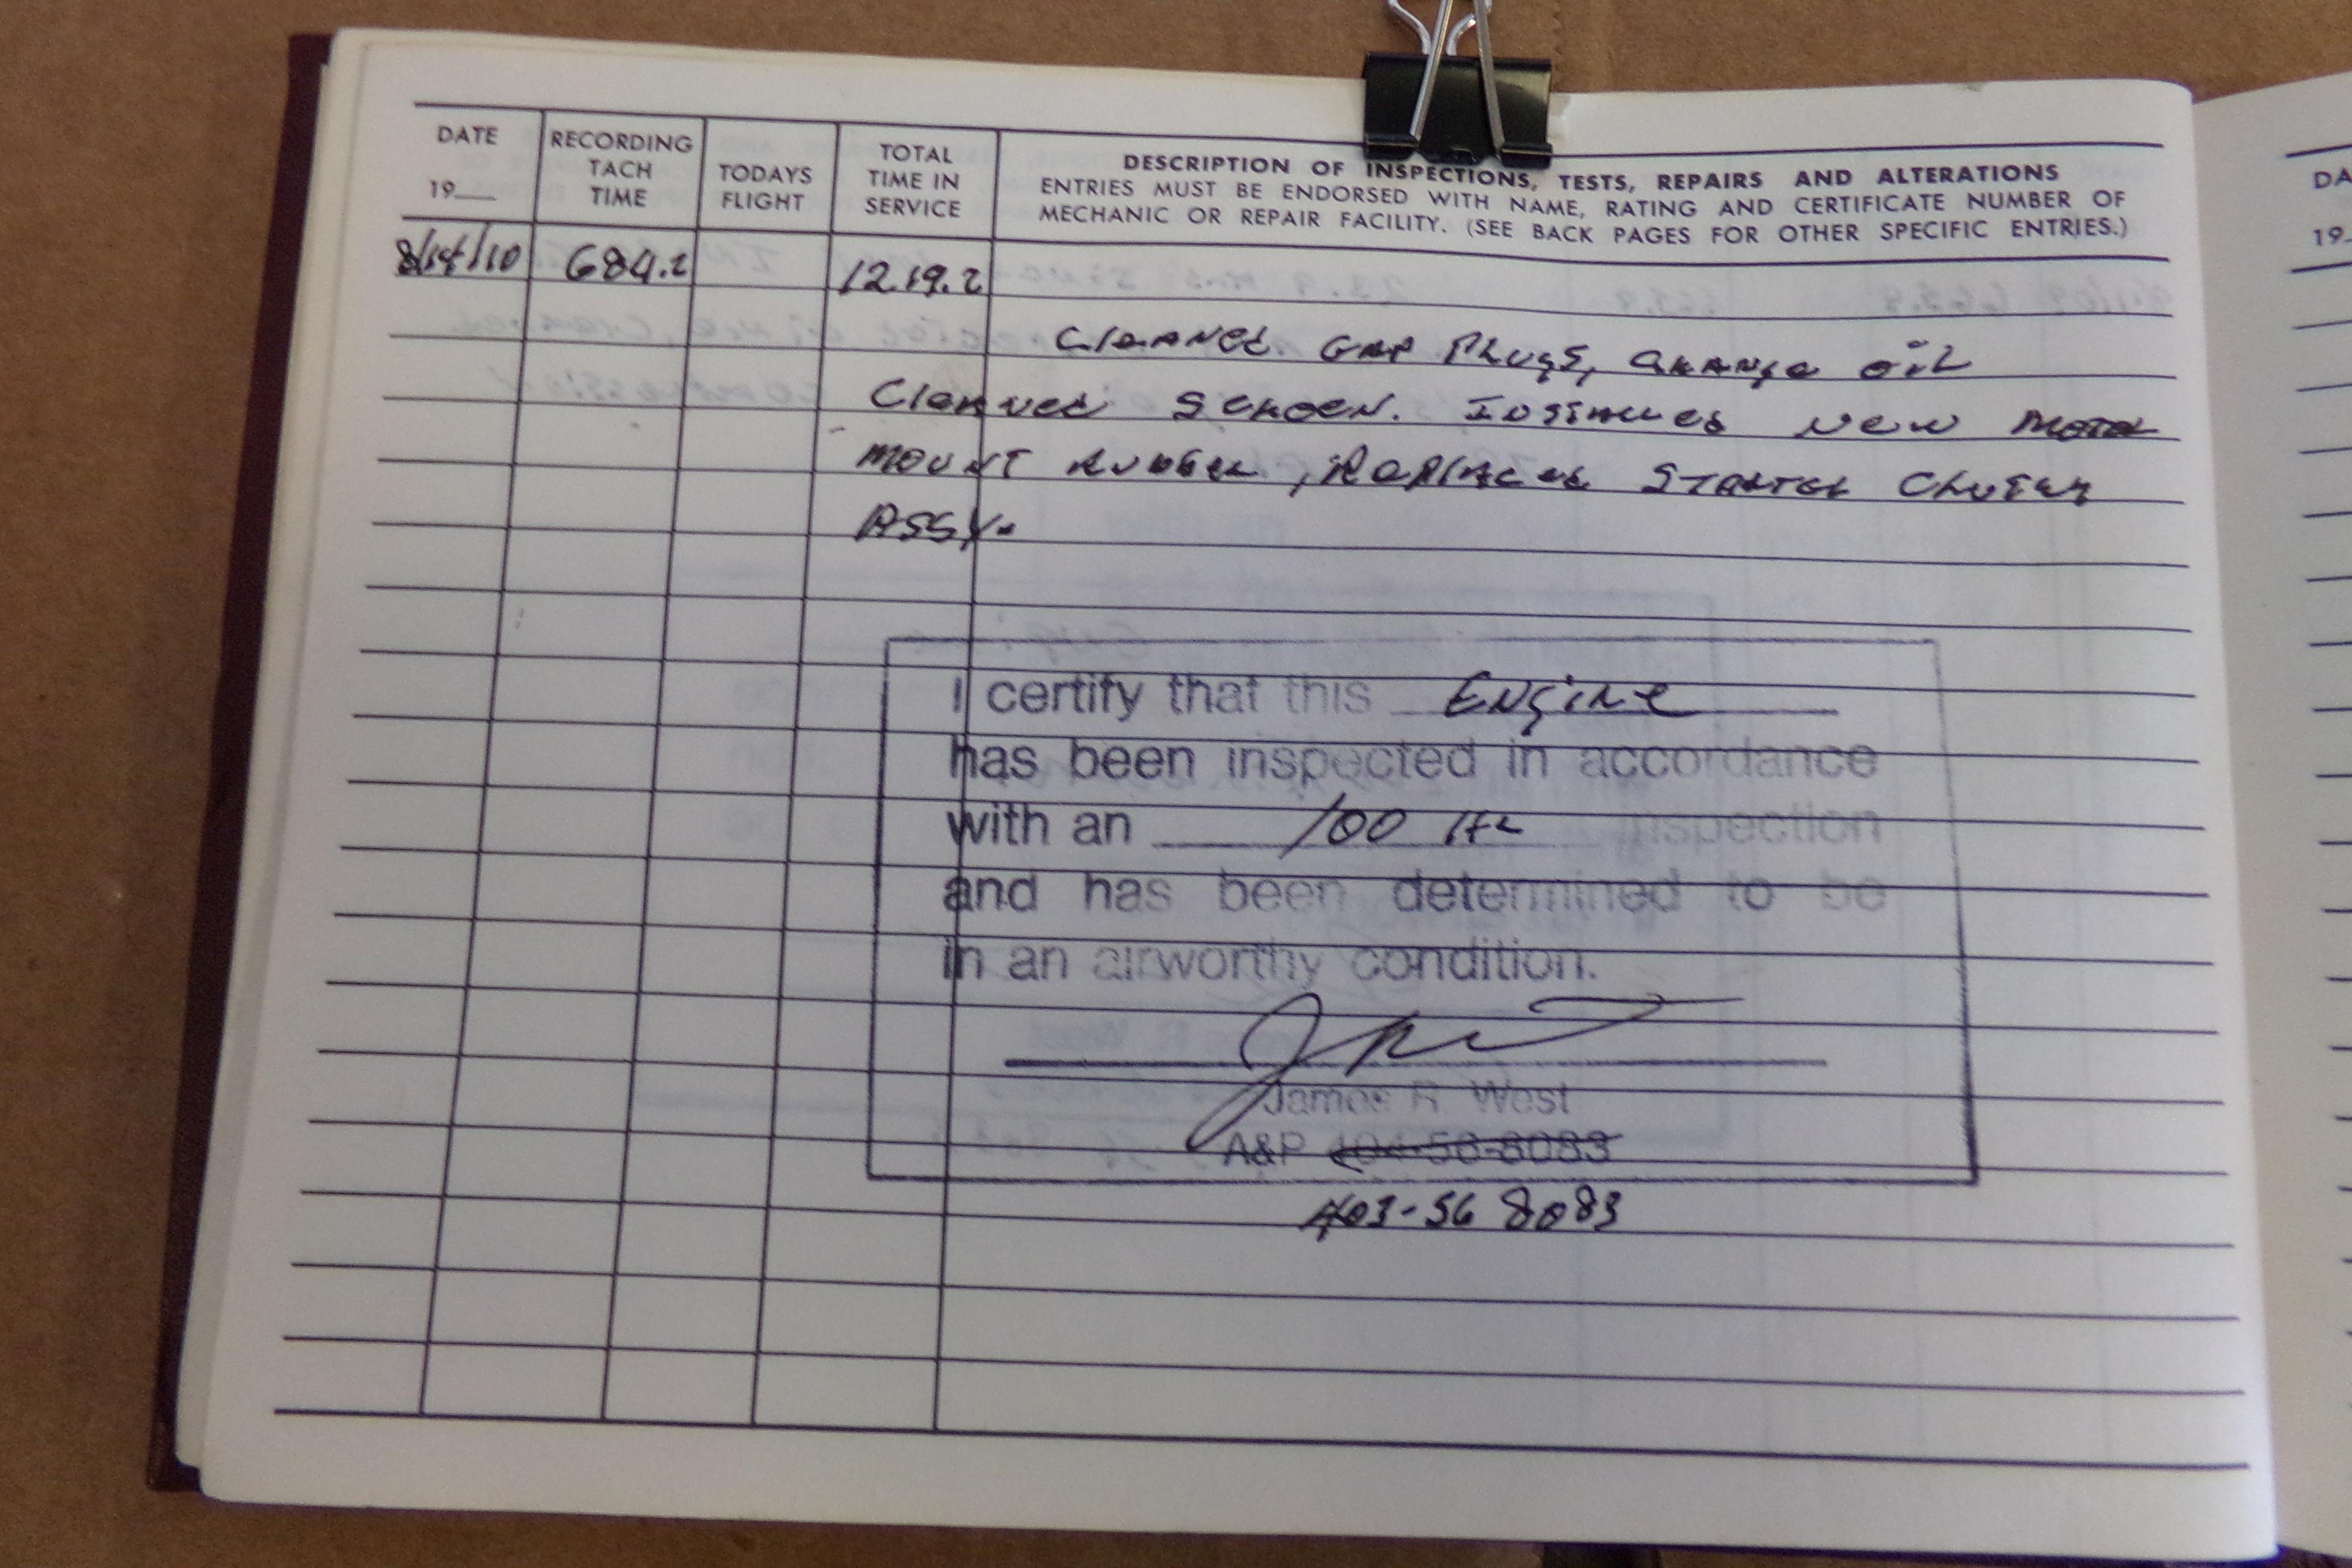 DATE
19__
RECORDING
TACH
TIME
TODAYS
FLIGHT
TOTAL
TIME IN
SERVICE
DESCRIPTION OF INSPECTIONS, TESTS, REPAIRS AND ALTERATIONS
ENTRIES MUST BE ENDORSED WITH NAME, RATING AND CERTIFICATE NUMBER OF
MECHANIC OR REPAIR FACILITY. (SEE BACK PAGES FOR OTHER SPECIFIC ENTRIES.)
8/14/10 684.2 1219.2
Cleaned GAP Plugs, Change oil
Cleaned Screen. Installed New Motor
Mount Rubber, Replaced Starter Clutch
Assy.
I certify that this Engine
has been inspected in accordance
with an 100 Hr inspection
and has been determined to be
in an airworthy condition.
James R. West
A&P 404-56-8083
403-56 8083
DA
19